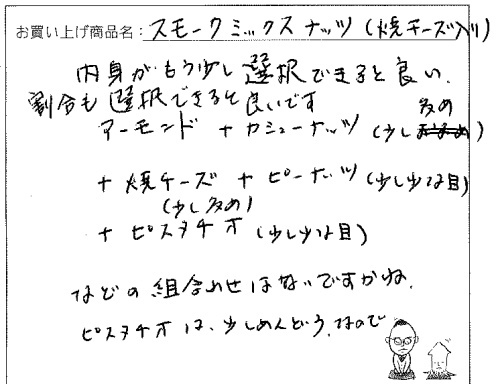 お買い上げ商品名：スモークミックスナッツ（焼チーズ入り）
内身がもう少し選択できると良い．
割合も選択できると良いです
アーモンド＋カシューナッツ（少し多め）
＋焼チーズ＋ピーナッツ（少し少な目）
（少し多め）
＋ピスタチオ（少し少な目）
などの組合わせはないですかね．
ピスタチオは、少しめんどう、なので